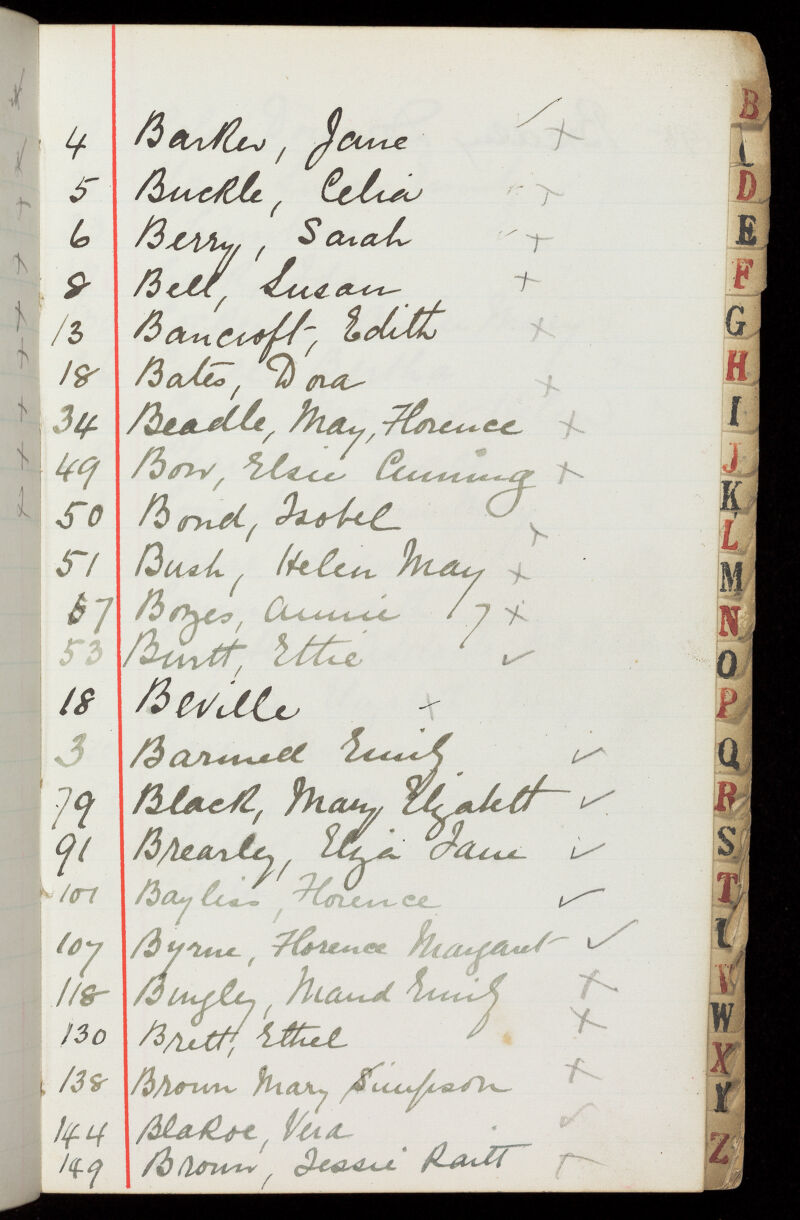 4 Barker, Jane
5 Buckle, Celia
6 Berry, Sarah
8 Bell, Susan
13 Bancroft, Edith
18 Bates, Dora
34 Beadle, May, Florence
49 Bow, Elsie Cumming
50 Bond, Isobel
51 Bush, Helen May
57 Boyes, Annie 7
53 Burtt, Ettie
18 Beville
3 Barwell Emily
79 Black, Mary Elizabeth
91 Brearley, Eliza Jane
101 Bayliss, Florence
107 Byrne, Florence Margaret
118 Bingley, Maud Emily
130 Brett, Ethel
138 Brown Mary Simpson
144 Blakoe, Vera
149 Brown, Jessie Raitt
B
D
E
F
G
H
I
J
K
L
M
N
O
P
Q
R
S
T
V
W
X
Y
Z